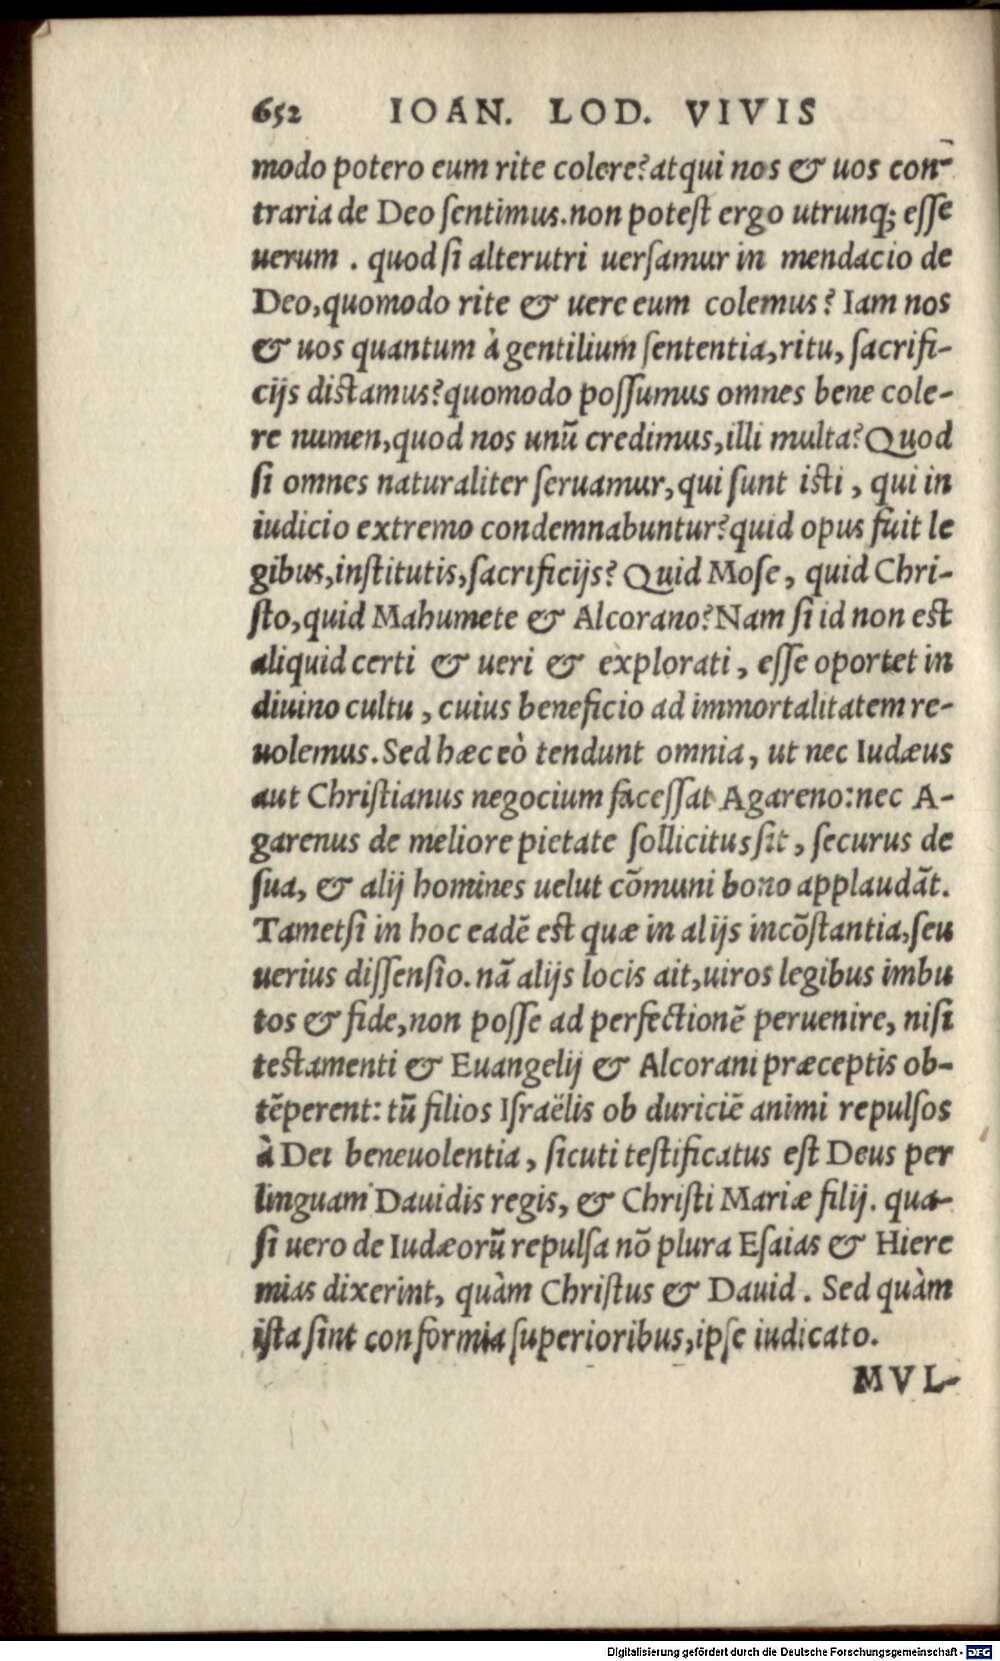 652 IOAN. LOD. VIVIS
modo potero eum rite colere? atqui nos & uos con-
traria de Deo ſentimus. non poteſt ergo utrunq; eſſe
uerum . quod ſi alterutri uerſamur in mendacio de
Deo, quomodo rite & uere eum colemus? Iam nos
& uos quantum à gentilium ſententia, ritu, ſacrifi-
cijs diſtamus? quomodo poſſumus omnes bene cole-
re numen, quod nos unũ credimus, illi multa? Quod
ſi omnes naturaliter ſeruamur, qui ſunt iſti , qui in
iudicio extremo condemnabuntur? quid opus fuit le
gibus, inſtitutis, ſacrificijs? Quid Moſe , quid Chri-
ſto, quid Mahumete & Alcorano? Nam ſi id non eſt
aliquid certi & ueri & explorati , eſſe oportet in
diuino cultu , cuius beneficio ad immortalitatem re-
uolemus. Sed hæc eò tendunt omnia , ut nec Iudæus
aut Chriſtianus negocium faceſſat Agareno: nec A-
garenus de meliore pietate ſollicitus ſit , ſecurus de
ſua, & alij homines uelut cõmuni bono applaudãt.
Tametſi in hoc eadẽ eſt quæ in alijs incõſtantia, ſeu
uerius diſſenſio. nã alijs locis ait, uiros legibus imbu
tos & fide, non poſſe ad perfectionẽ peruenire, niſi
teſtamenti & Euangelij & Alcorani præceptis ob-
tẽperent: tũ filios Iſraëlis ob duriciẽ animi repulſos
à Dei beneuolentia , ſicuti teſtificatus eſt Deus per
linguam Dauidis regis, & Chriſti Mariæ filij. qua-
ſi uero de Iudæorũ repulſa nõ plura Eſaias & Hiere
mias dixerint, quàm Chriſtus & Dauid . Sed quàm
iſta ſint conformia ſuperioribus, ipſe iudicato.
MVL-
Digitalisierung gefördert durch die Deutsche Forschungsgemeinschaft - DFG